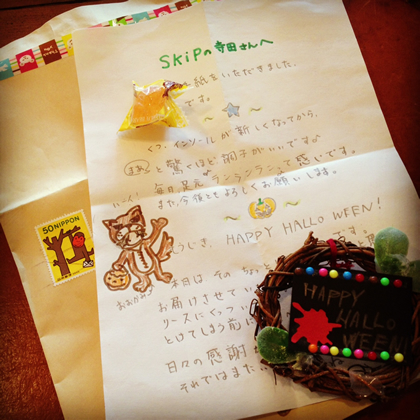 SKiPの寺田さんへ
紙をいただきました、
です。
くつ、インソールが新しくなってから、
と驚くほど調子がいいです♪
毎日足元ランランランって感じです。
また、今後ともよろしくお願いします。
HAPPY HALLO WEEN!
おおかみ
本日は、その
お届けさせてい
リースにくっつ
とけてしまう前に
日々の感謝
それではまた
50 NIPPON
HAPPY
HALLO
WEEN!